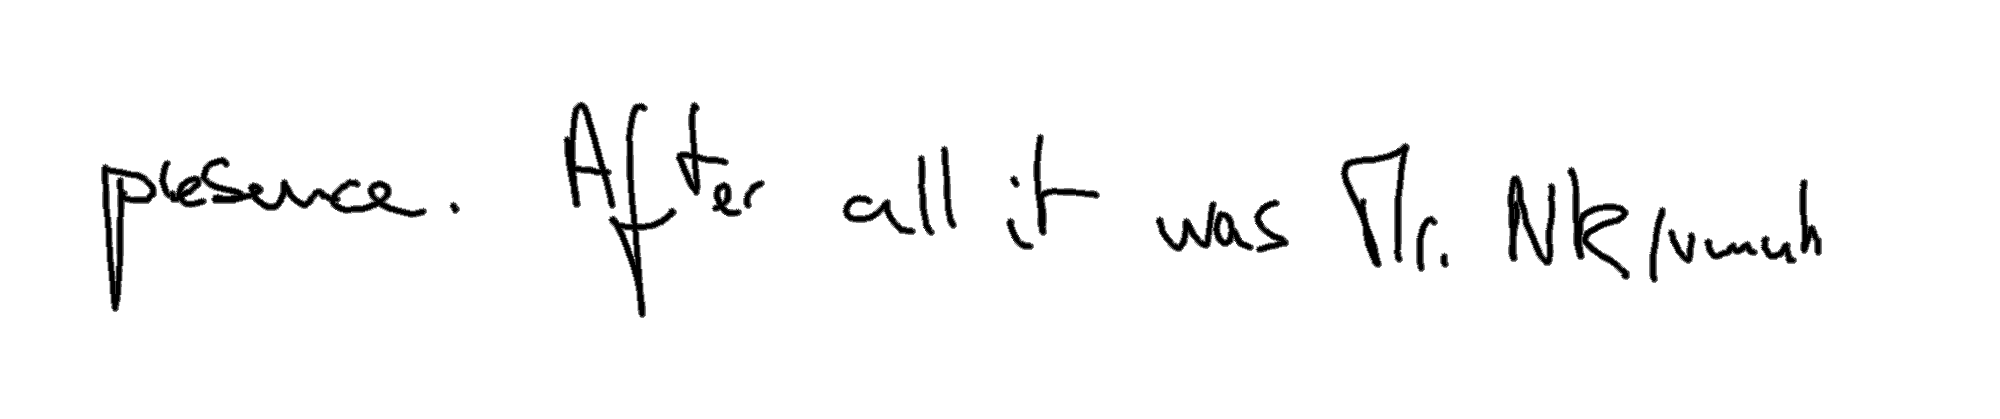 presence. After all it was Mr. Nkrumah